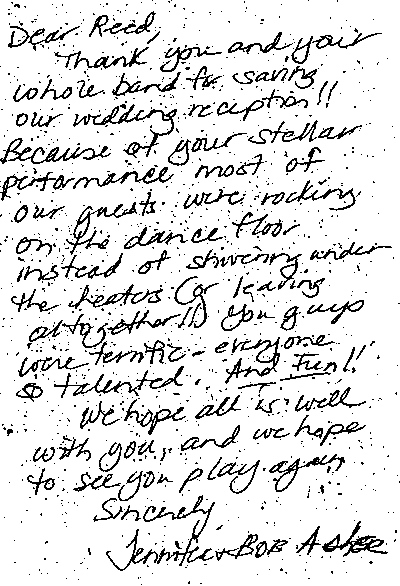 Dear Reed,
Thank you and your
whole band for saving
our wedding reception!!
Because of your stellar
performance most of
our guests were rocking
on the dance floor
instead of shivering under
the heaters (or leaving
altogether!!) You guys
were terrific - everyone
so talented. And Fun!!
We hope all is well
with you, and we hope
to see you play again
Sincerely
Jennifer & Bob